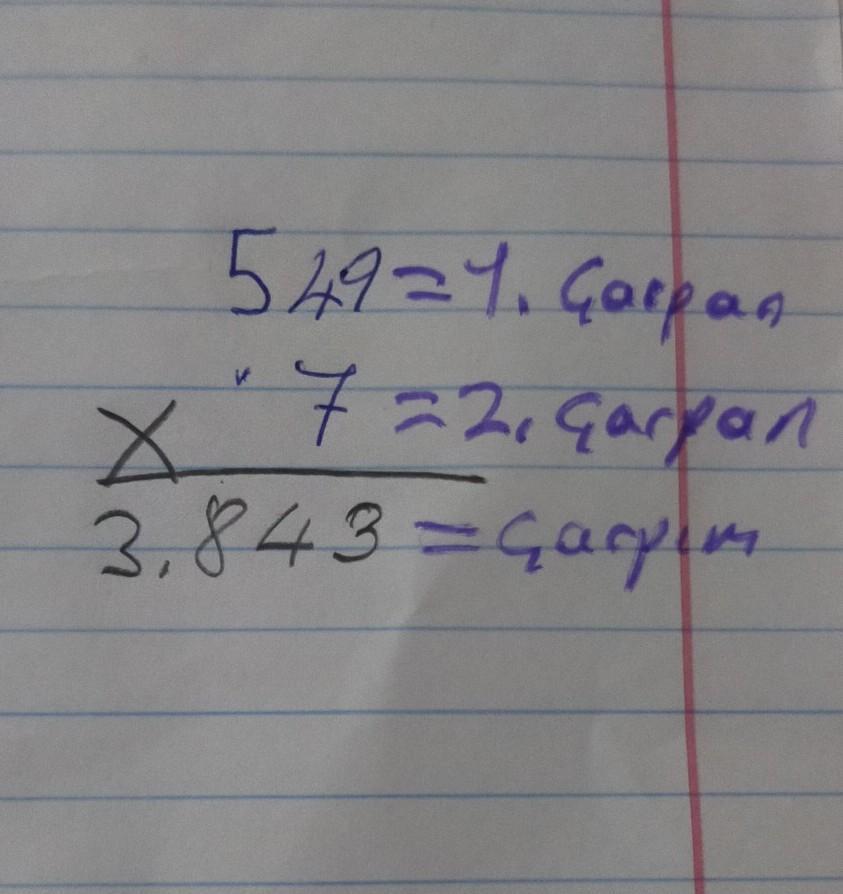 549=1. Çarpan
x 7=2. Çarpan
3.843=Çarpım